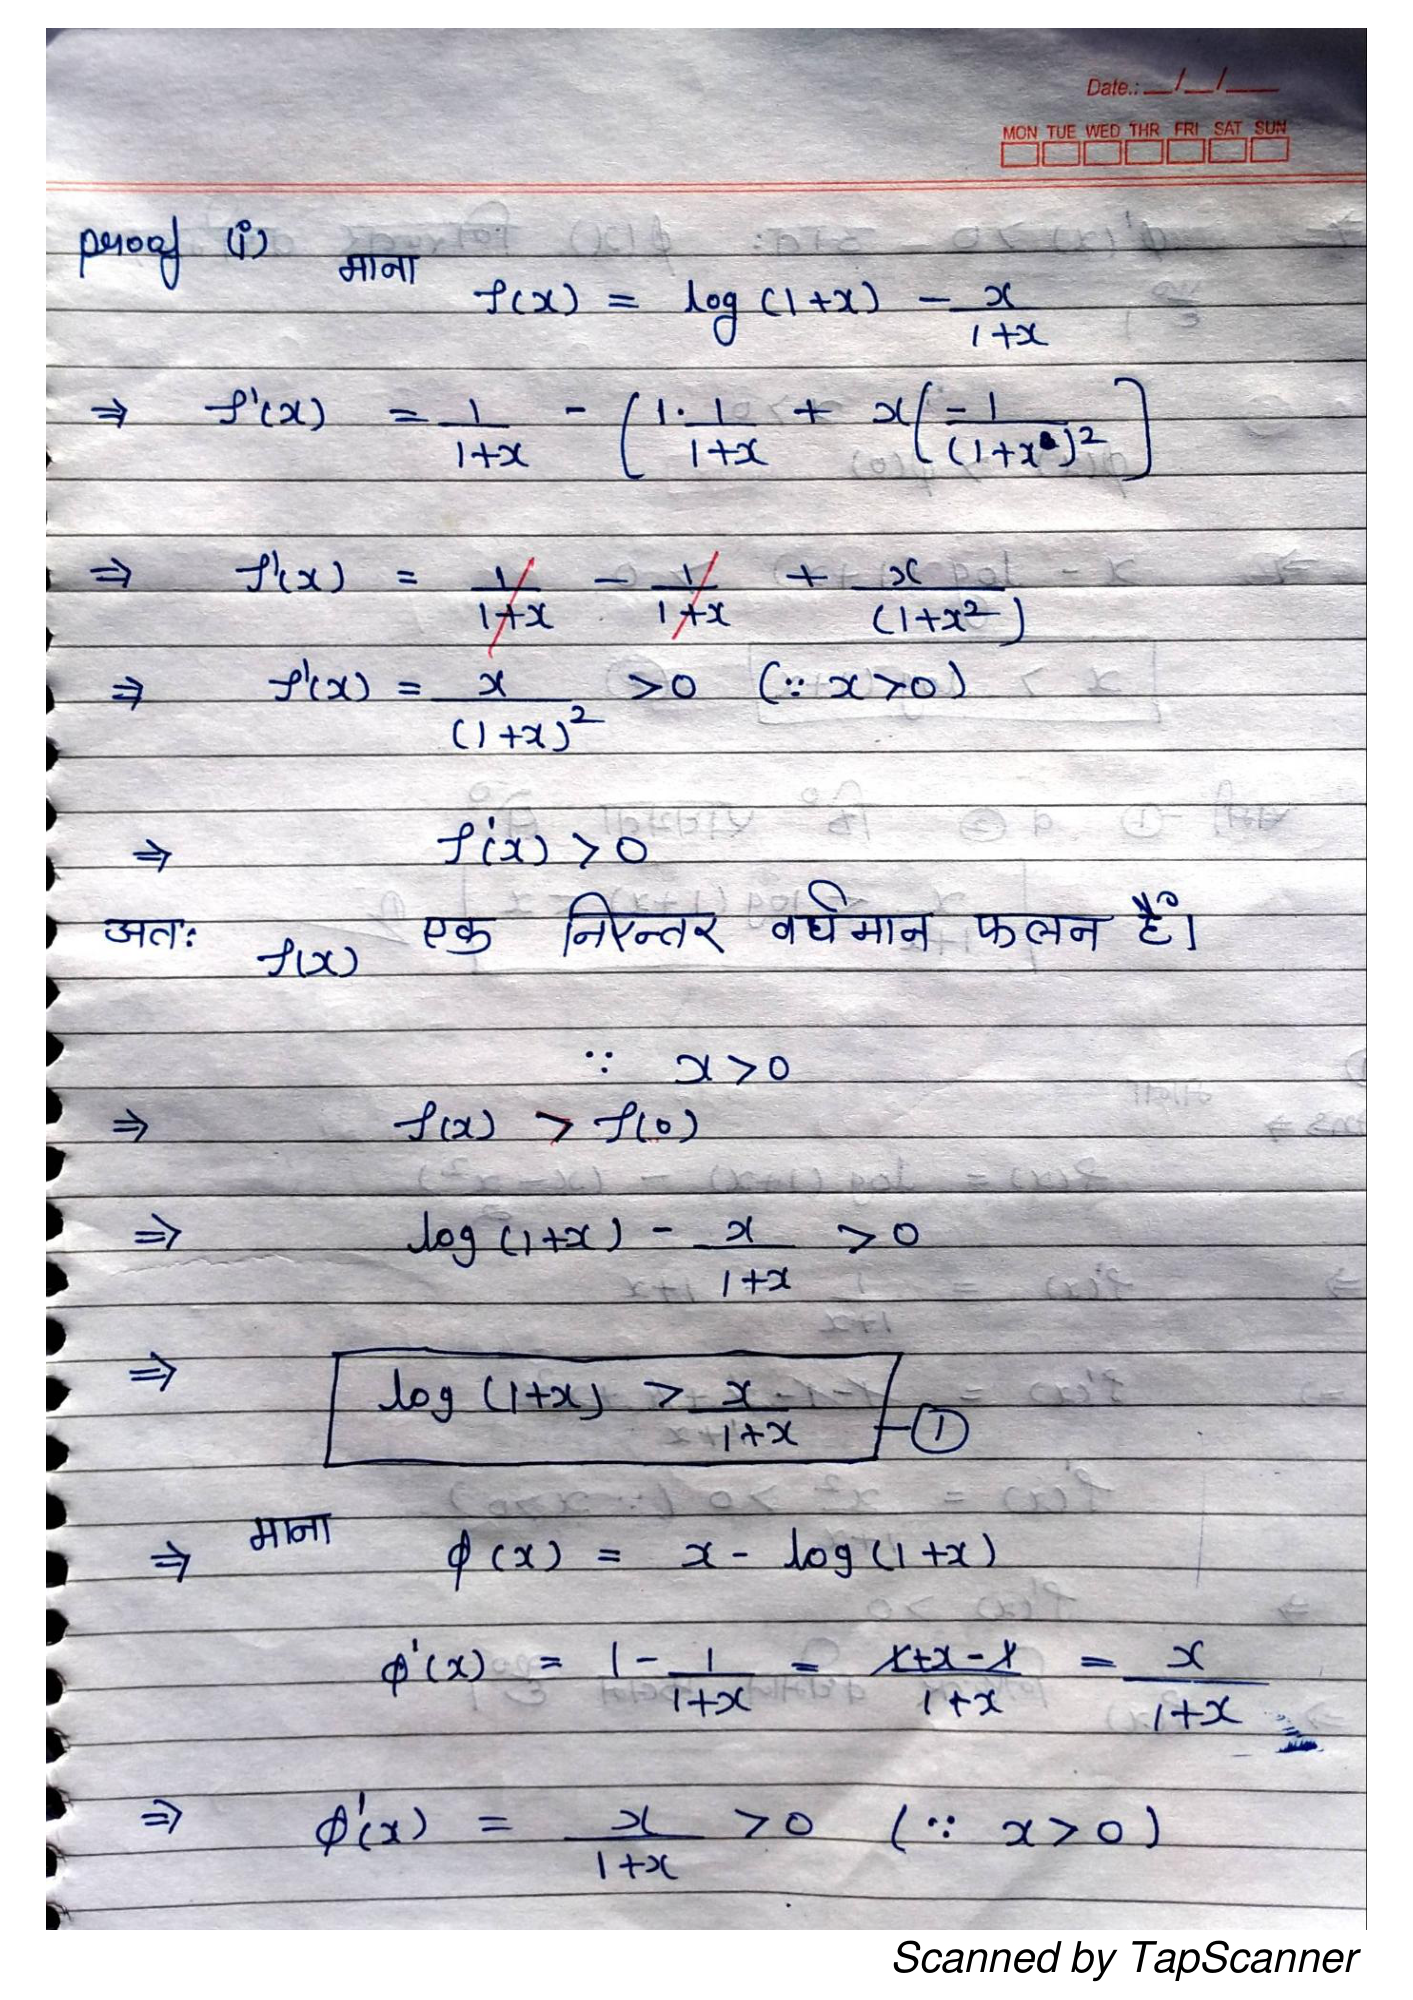 Date.: __/__/___
MON TUE WED THR FRI SAT SUN
proof (i) माना
f(x) = log (1+x) - x/(1+x)
⇒ f'(x) = 1/(1+x) - [1·1/(1+x) + x(-1/(1+x)²]
⇒ f'(x) = 1/(1+x) - 1/(1+x) + x/(1+x²)
⇒ f'(x) = x/(1+x)² >0 (∵ x>0)
⇒ f'(x) >0
अतः f(x) एक निरन्तर वर्धमान फलन है।
∵ x>0
⇒ f(x) > f(0)
⇒ log (1+x) - x/(1+x) >0
⇒ log (1+x) > x/(1+x) -①
⇒ माना ϕ(x) = x - log(1+x)
ϕ'(x) = 1 - 1/(1+x) = (1+x-1)/(1+x) = x/(1+x)
⇒ ϕ'(x) = x/(1+x) >0 (∵ x>0)
Scanned by TapScanner